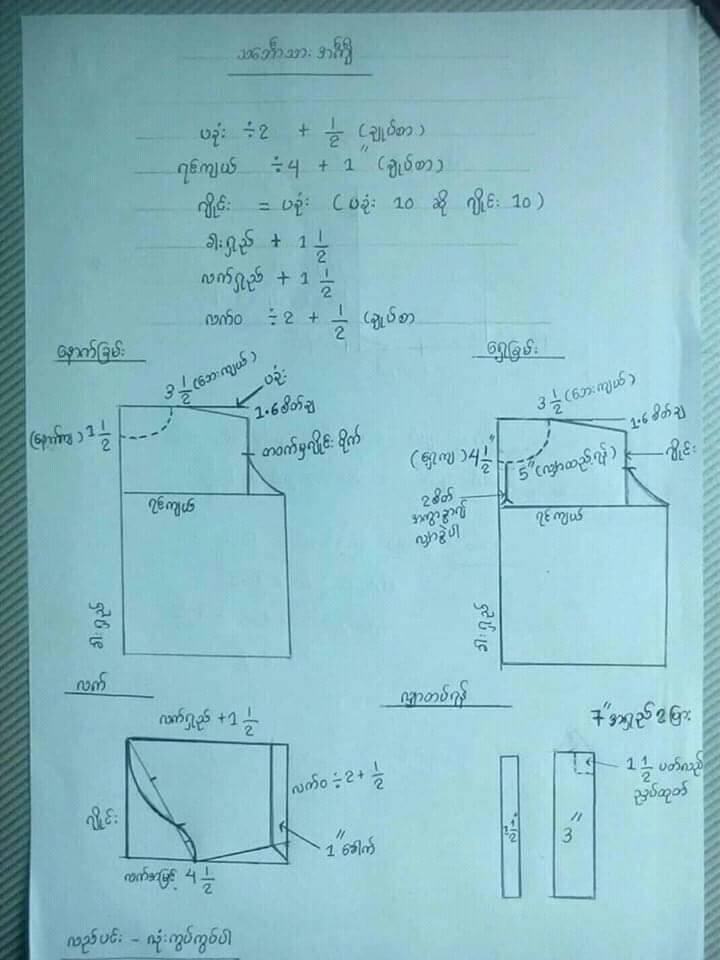 သင်္ဘောသား အင်္ကျီ
ပခုံး ÷ 2 + 1/2 (ချုပ်စာ)
ရင်ကျယ် ÷ 4 + 1" (ချုပ်စာ)
ဂျိုင်း = ပခုံး (ပခုံး 10 ဆို ဂျိုင်း 10)
ခါးရှည် + 1 1/2
လက်ရှည် + 1 1/2
လက်ဝ ÷ 2 + 1/2 (ချုပ်စာ
နောက်ခြမ်း
3 1/2 (ဘေးကျယ်)
ပခုံး
1.6 စိတ်ချ
(နောက်ကျ) 1 1/2
တဝက်မှဂျိုင်းမှိုက်
ရင်ကျယ်
ခါးရှည်
ရှေ့ခြမ်း
3 1/2 (ဘေးကျယ်)
1.6 စိတ်ချ
(ရှေ့ကျ) 4 1/2"
5" (လျှာထည့်ရန်)
ဂျိုင်း
2 စိတ်
လျှာခွဲပါ
ရင်ကျယ်
ခါးရှည်
လက်
လက်ရှည် + 1 1/2
ဂျိုင်း
လက်ဝ ÷ 2 + 1/2
1" ခေါက်
လက်အမြင့် 4 1/2
လျှာတပ်ရန်
7" အရှည် 2 ပြား
1 1/2"
3"
1 1/2 ပတ်လည်
ညှပ်ထုတ်
လည်ပင်း – လုံးကွပ်ကွပ်ပါ